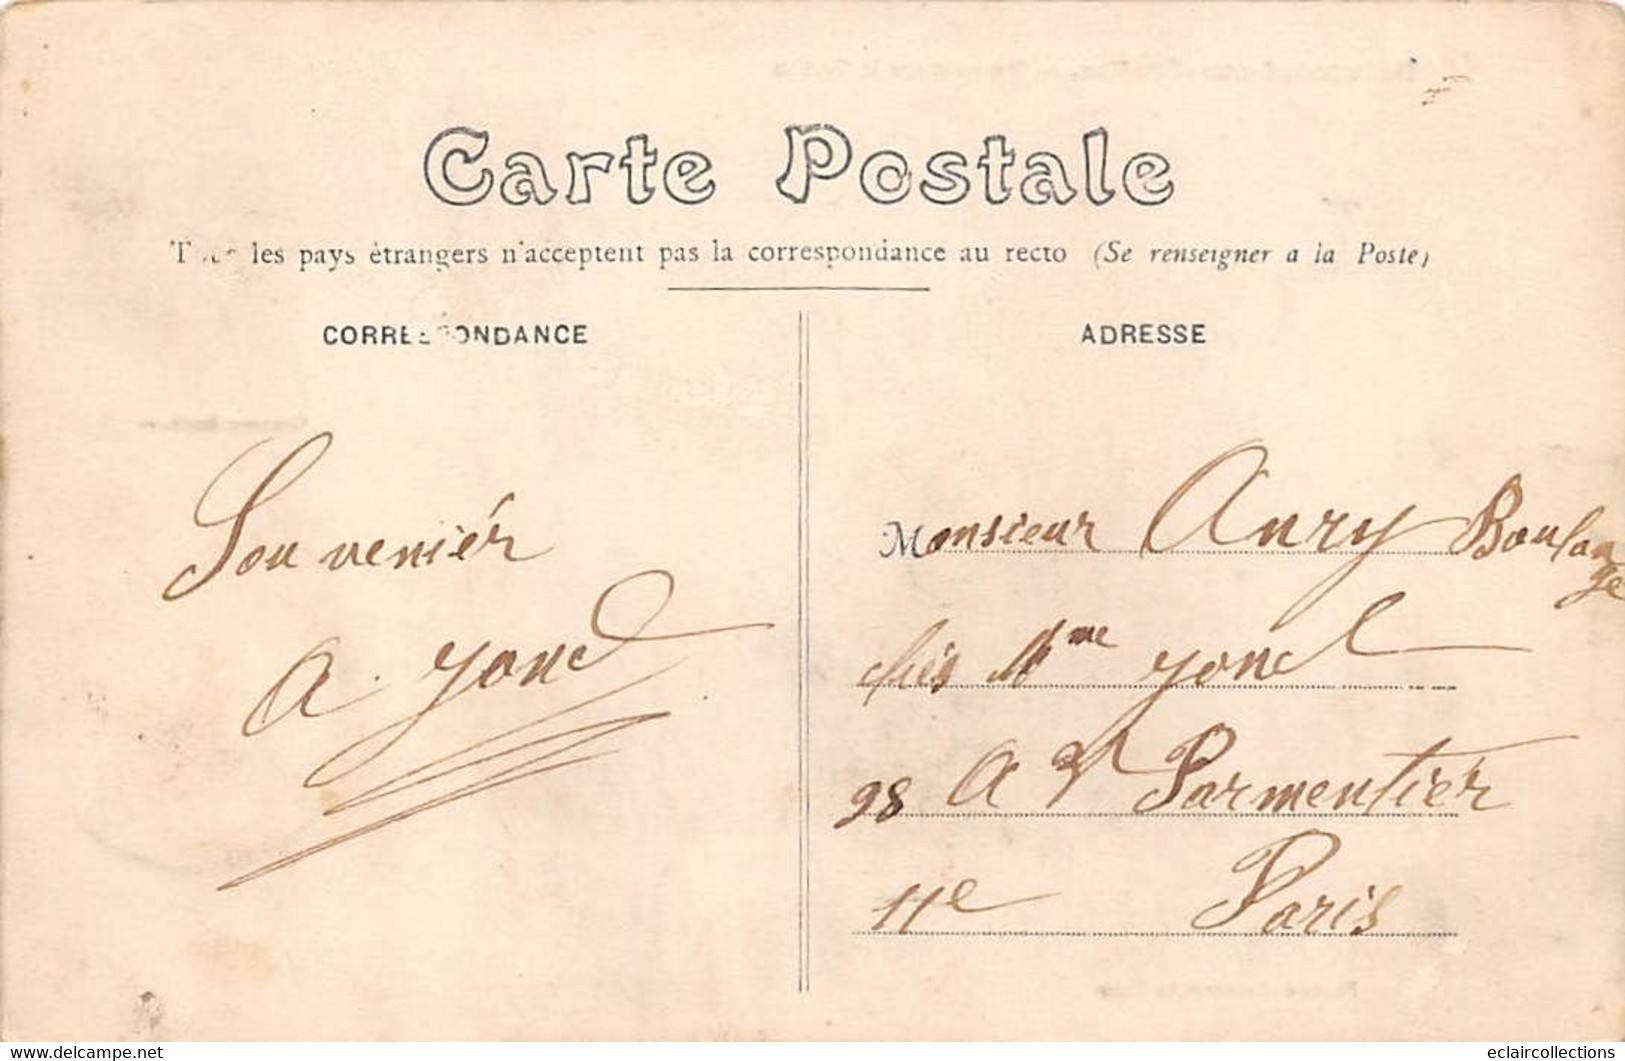 Carte Postale
Tous les pays étrangers n'acceptent pas la correspondance au recto (Se renseigner a la Poste)
CORRESPONDANCE
ADRESSE
Souveniér
A. yond
Monsieur Anry Boulan
ge
chés Mme yond
98 Av Parmentier
11e Paris
delcampe.net
eclaircollections